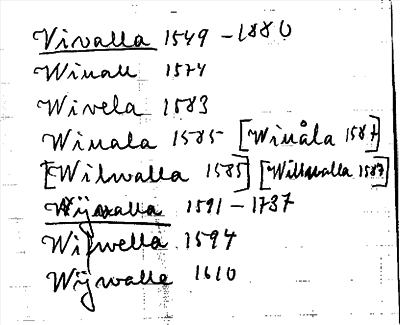 Vivalla 1549-1880
Winall 1574
Wivela 1583
Wiuala 1585 [Wiuåla 1587]
[Wilwalla 1585] [Willwalla 1587]
Wijwalla 1591-1737
Wijwella 1594
Wijwalle 1610